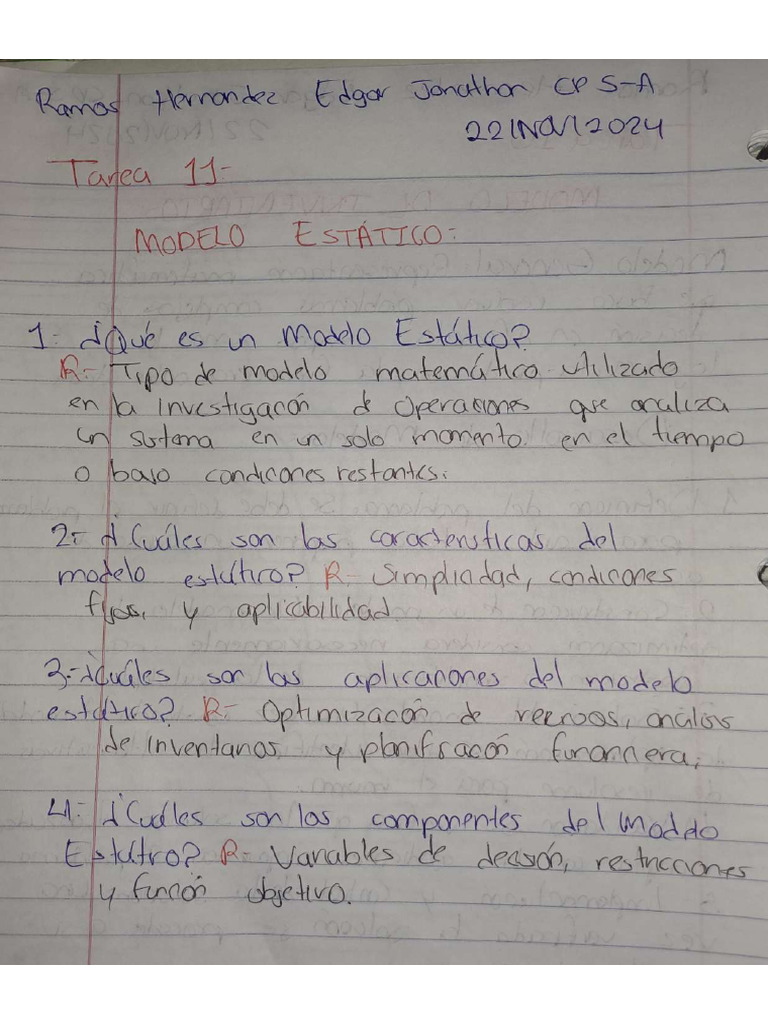 Ramos Hernandez Edgar Jonathan CP 5-A
22/NOV/2024
Tarea 11-
MODELO ESTÁTICO:
1- ¿Qué es un Modelo Estático?
R- Tipo de modelo matemático utilizado
en la investigación de Operaciones que analiza
un sistema en un solo momento en el tiempo
o bajo condiciones restantes.
2- ¿Cuáles son las características del
modelo estático? R- Simplicidad, condiciones
fijas, y aplicabilidad
3- ¿Cuáles son las aplicaciones del modelo
estático? R- Optimización de recursos, análisis
de inventarios y planificación financiera,
4- ¿Cuáles son los componentes del Modelo
Estático? R- Variables de decisión, restricciones
y función objetivo.